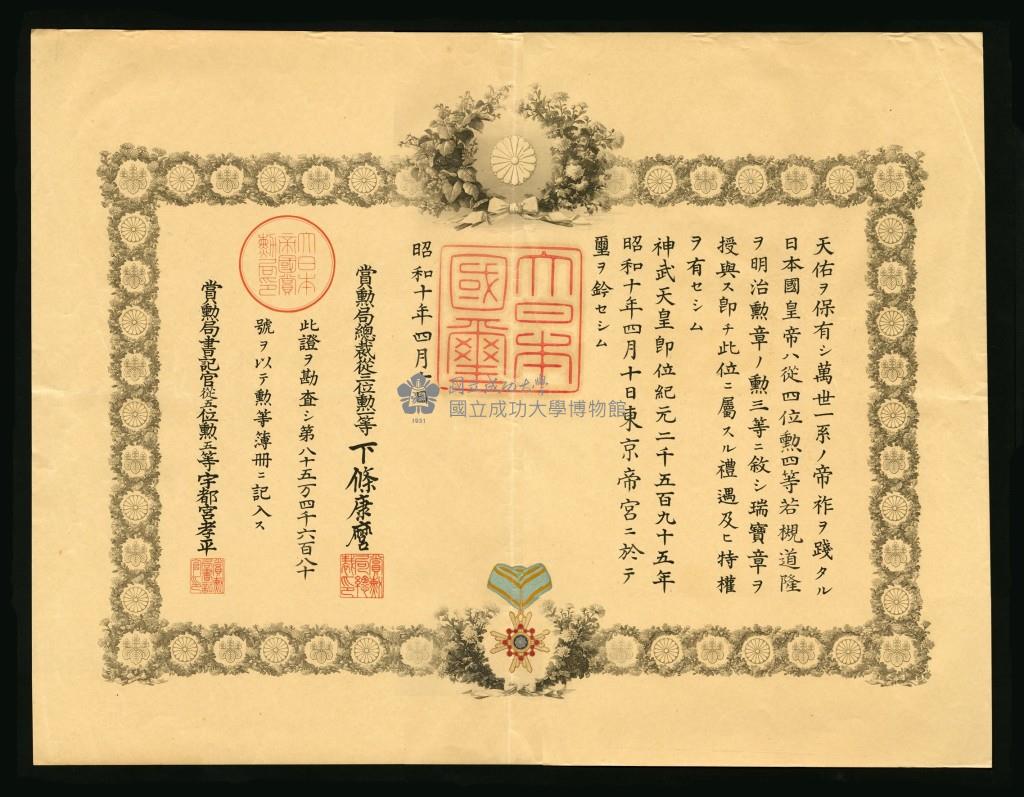 天佑ヲ保有シ萬世一系ノ帝祚ヲ踐タル
日本國皇帝ハ從四位勲四等若槻道隆
ヲ明治勲章ノ勲三等ニ敘シ瑞寶章ヲ
授與ス卽チ此位ニ屬スル禮遇及ヒ特權
ヲ有セシム
神武天皇卽位紀元二千五百九十五年
昭和十年四月十日東京帝宮ニ於テ
璽ヲ鈐セシム
大日本
國璽
昭和十年四月十
賞勲局總裁從三位勲一等下條康麿
賞勲局總裁印
此證ヲ勘査シ第八十五万四千六百八十
號ヲ以テ勲等簿册ニ記入ス
大日本
帝國賞
勲局印
賞勲局書記官從五位勲五等宇都宮孝平
國立成功大學
國立成功大學博物館
1931